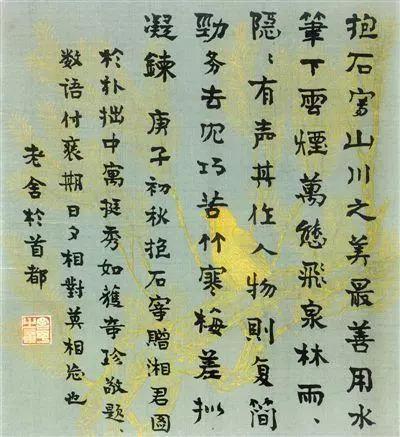 抱石寫山川之美最善用水
筆下雲煙萬態飛泉林雨、
隱、有声其作人物則复簡
勁务去巧苦竹寒梅差拟
凝鍊 庚子初秋抱石宰贈湘君圖
於朴拙中寓挺秀如獲奇珍敬題、
数语付裱期日夕相對莫相忘也
老舍於首都